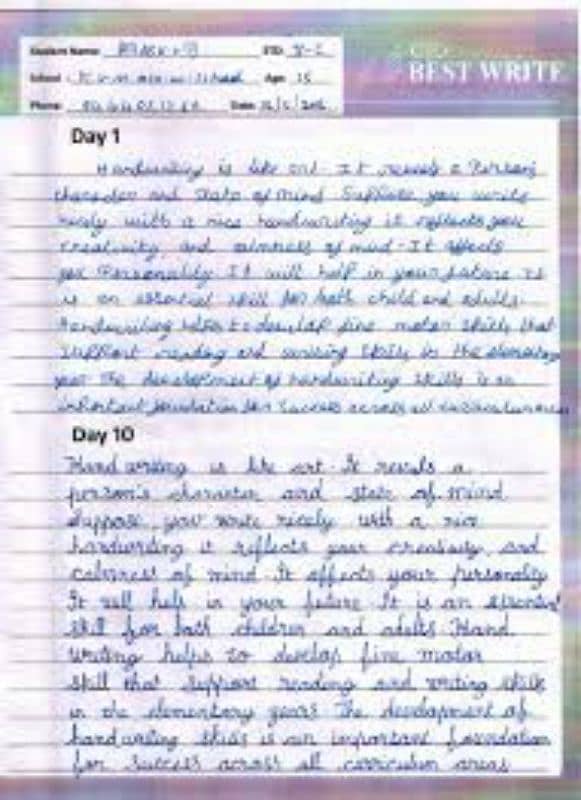 BEST WRITE
Student Name STD
School School Age 15
Phone Date
Day 1
Handwriting is like art. It reveals a Person's
character and State of mind Suppose you write
nicely with a nice handwriting it reflects your
creativity and calmness of mind. It affects
Personality It will help in your future It
is an essential skill for both child and adults.
handwriting helps to develop fine motor skills that
support reading and writing skills in the elementary
year The development of handwriting skills is an
important foundation for success across all curriculum
Day 10
Hand writing is like art. It reveals a
person's character and state of mind
suppose you write nicely with a nice
handwriting it reflects your creativity and
calmness of mind. It affects your personality
It will help in your future. It is an essential
skill for both children and adults Hand
writing helps to develop fine motor
skill that support reading and writing skills
in the elementary years The development of
handwriting skills is an important foundation
for success across all curriculum areas